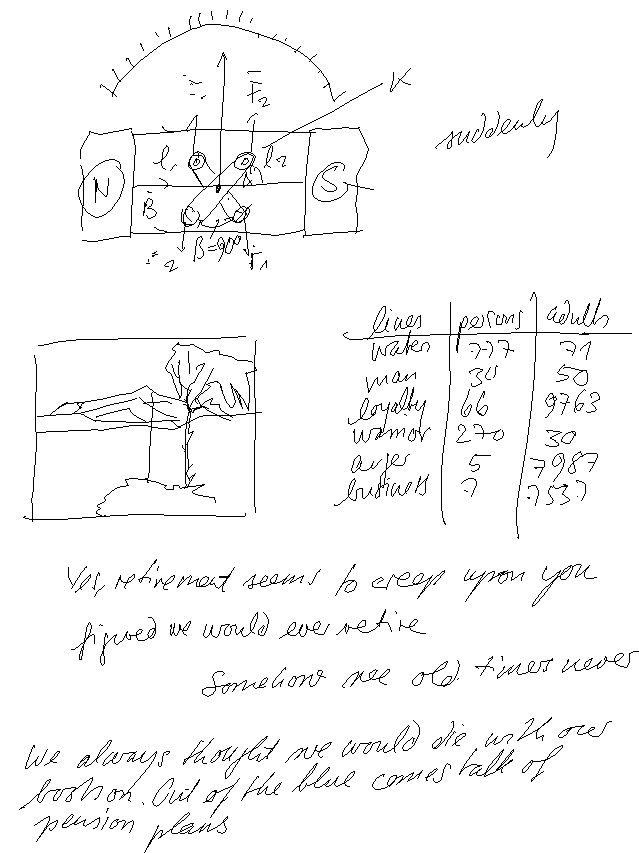 F2
K
suddenly
l1
l2
N
S
B
2
β=90°
F1
lines persons adults
water 777 71
man 30 50
loyalty 66 9763
270 30
anger 5 7987
business 7 7537
Yes, retirement seems to creep upon you
figured we would ever retire
Somehow we old timers never
We always thought we would die with our
boots on. Out of the blue comes talk of
pension plans